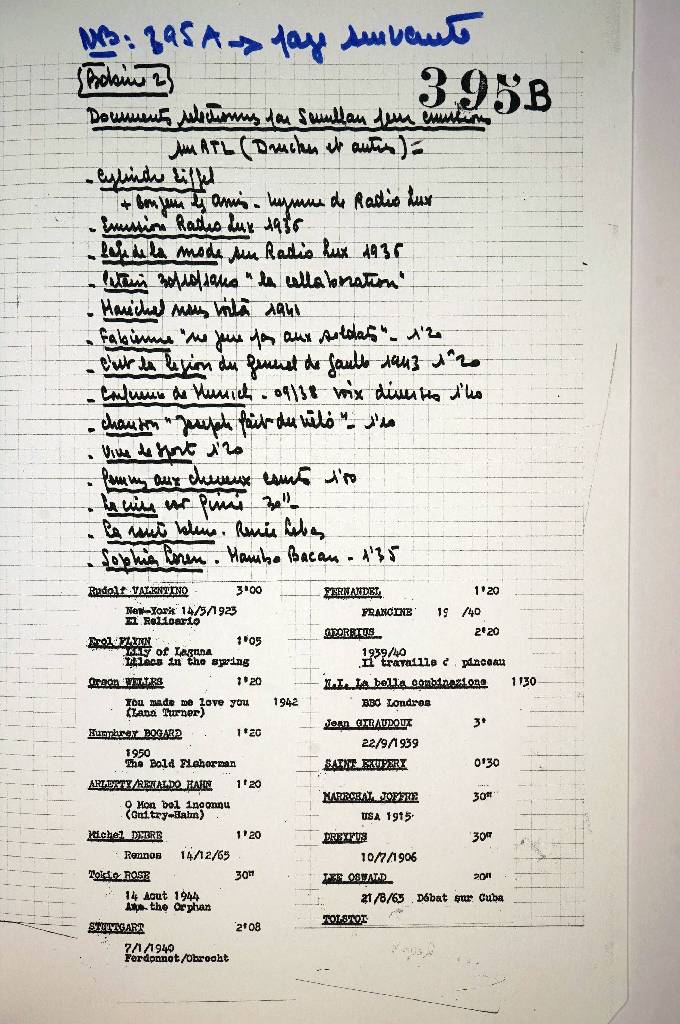 NB: 395A → page suivante
Bobine 2
395B
Documents sélectionnés par Saoullan pour émissions
sur RTL (Drucker et autres) =
- Cylindre Eiffel
+ Bonjour les amis - hymne de Radio Lux
- Emission Radio Lux 1936
- de la mode sur Radio Lux 1936
- Pétain 30/10/1940 "la collaboration"
- Maréchal nous voilà 1941
- Fabienne "ne jou pas aux soldats" - 1'20
- C'est la légion du général de Gaulle 1943 1'20
- Conférence de Munich - 09/38 voix diverses 1'40
- chanson "Joseph fait du vélo" - 1'10
- Vive le sport 1'20
- aux cheveux courts 1'00
- La crise est finie 30"-
- La route bleue - Renée Lebas
- Sophia Loren - Mambo Bacan - 1'35
Rudolf VALENTINO 3'00
New-York 14/5/1923
El Relicario
Erol FLYNN 1'05
Lily of Laguna
Lilacs in the spring
Orson WELLES 1'20
You made me love you 1942
(Lana Turner)
Humphrey BOGARD 1'20
1950
The Bold Fisherman
ARLETTY/RENALDO HAHN 1'20
O Mon bel inconnu
(Guitry-Hahn)
Michel DEBRE 1'20
Rennes 14/12/65
Tokio ROSE 30"
14 Aout 1944
Ann the Orphan
STUTTGART 2'08
7/1/1940
Ferdonnet/Obrecht
FERNANDEL 1'20
FRANCINE 19 /40
GEORGIUS 2'20
1939/40
Il travaille d pinceau
N.I. La bella combinazione 1'30
BBC Londres
Jean GIRAUDOUX 3'
22/9/1939
SAINT EXUPERY 0'30
MARECHAL JOFFRE 30"
USA 1915
DREYFUS 30"
10/7/1906
LEE OSWALD 20"
21/8/63 Débat sur Cuba
TOLSTOI